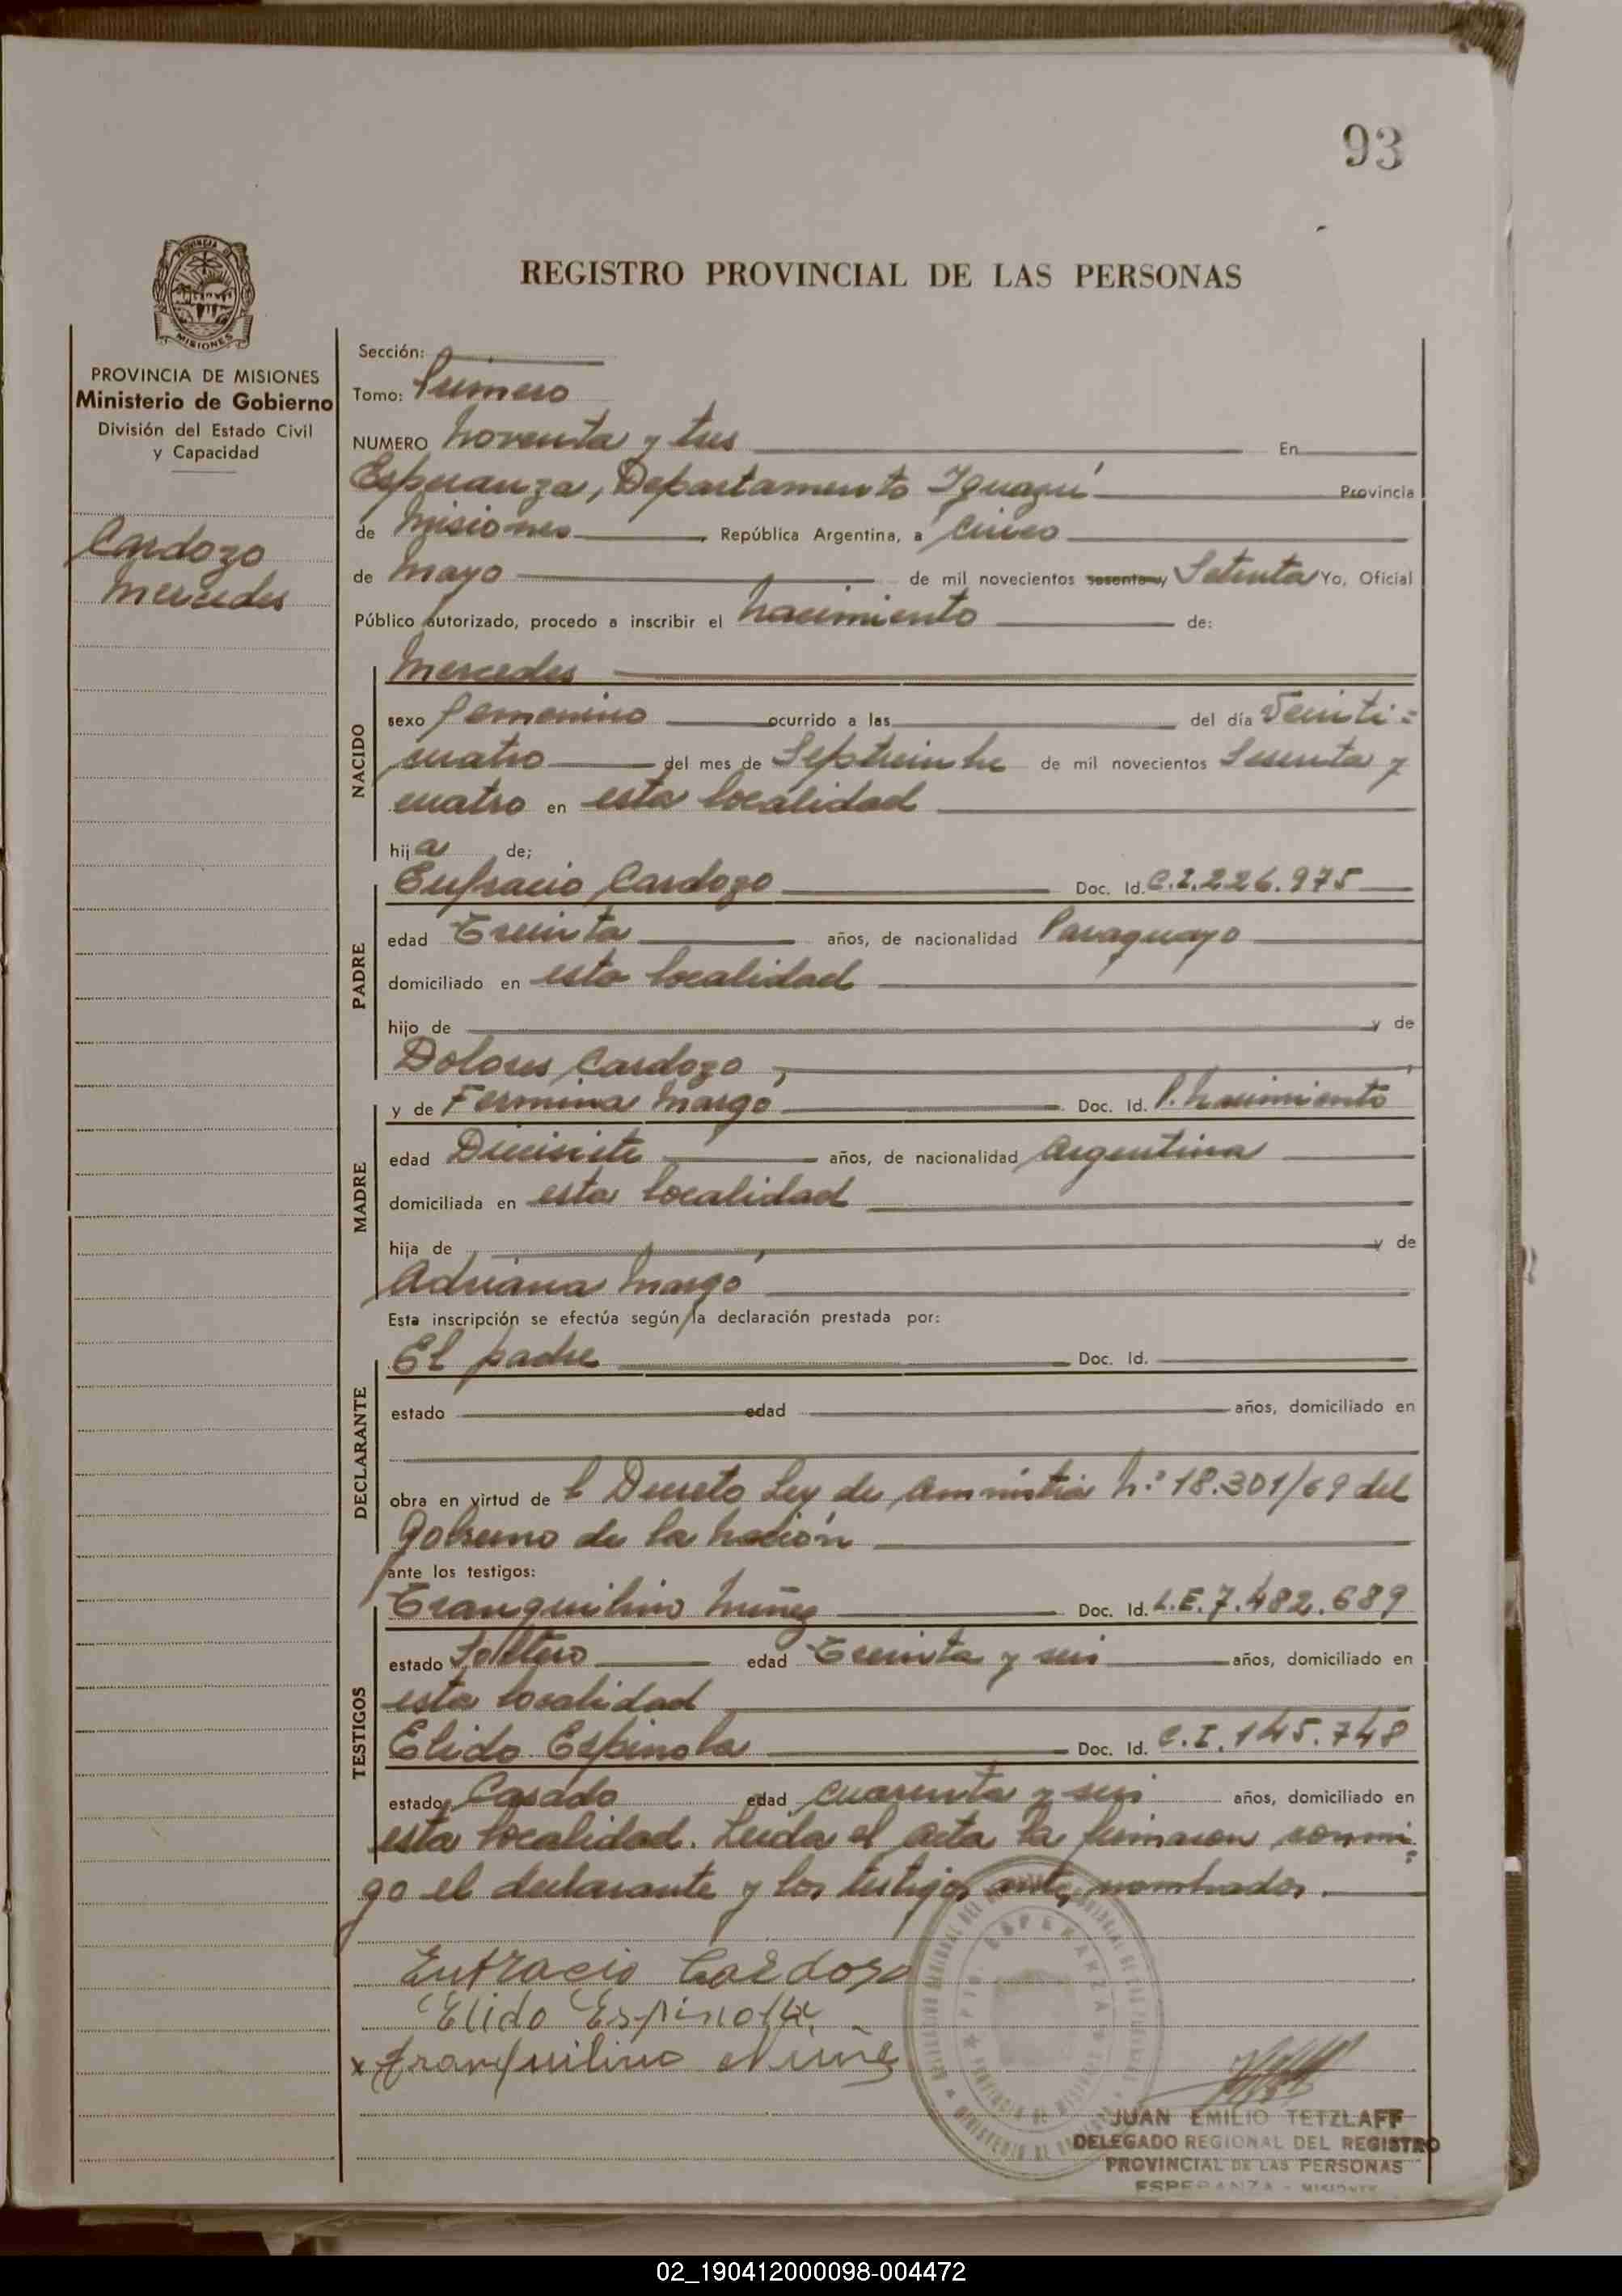 93
PROVINCIA DE
MISIONES
REGISTRO PROVINCIAL DE LAS PERSONAS
PROVINCIA DE MISIONES
Ministerio de Gobierno
División del Estado Civil
y Capacidad
Cardozo
Mercedes
Sección:
Tomo: Primero
NUMERO Noventa y tres En
Esperanza, Departamento Iguazú Provincia
de Misiones, República Argentina, a Cinco
de Mayo de mil novecientos sesenta y Setenta Yo, Oficial
Público autorizado, procedo a inscribir el Nacimiento de:
NACIDO
Mercedes
sexo femenino ocurrido a las del día Veinti=
cuatro del mes de Septiembre de mil novecientos Sesenta y
cuatro en esta localidad
hija de;
PADRE
Eufracio Cardozo Doc. Id. C.I.226.975
edad Treinta años, de nacionalidad Paraguayo
domiciliado en esta localidad
hijo de y de
Dolores Cardozo,
MADRE
y de Fermina Margo Doc. Id. P. Nacimiento
edad Diecisiete años, de nacionalidad Argentina
domiciliada en esta localidad
hija de y de
Adriana Margo
Esta inscripción se efectúa según la declaración prestada por:
DECLARANTE
El padre Doc. Id.
estado edad años, domiciliado en
obra en virtud de l Decreto Ley de Amnistía N.º 18.301/69 del
Gobierno de la Nación
ante los testigos:
TESTIGOS
Tranquilino Nuñez Doc. Id. L.E.7.482.689
estado Soltero edad Treinta y seis años, domiciliado en
esta localidad
Elido Espinola Doc. Id. C.I.145.748
estado Casado edad cuarenta y seis años, domiciliado en
esta localidad. Leida el acta la firmaron conmi=
go el declarante y los testigos ante nombrados.
Eufracio Cardozo
Elido Espinola
x Tranquilino Nuñe
ESPERANZA
JUAN EMILIO TETZLAFF
DELEGADO REGIONAL DEL REGISTRO
PROVINCIAL DE LAS PERSONAS
ESPERANZA - MISIONES
02_190412000098-004472